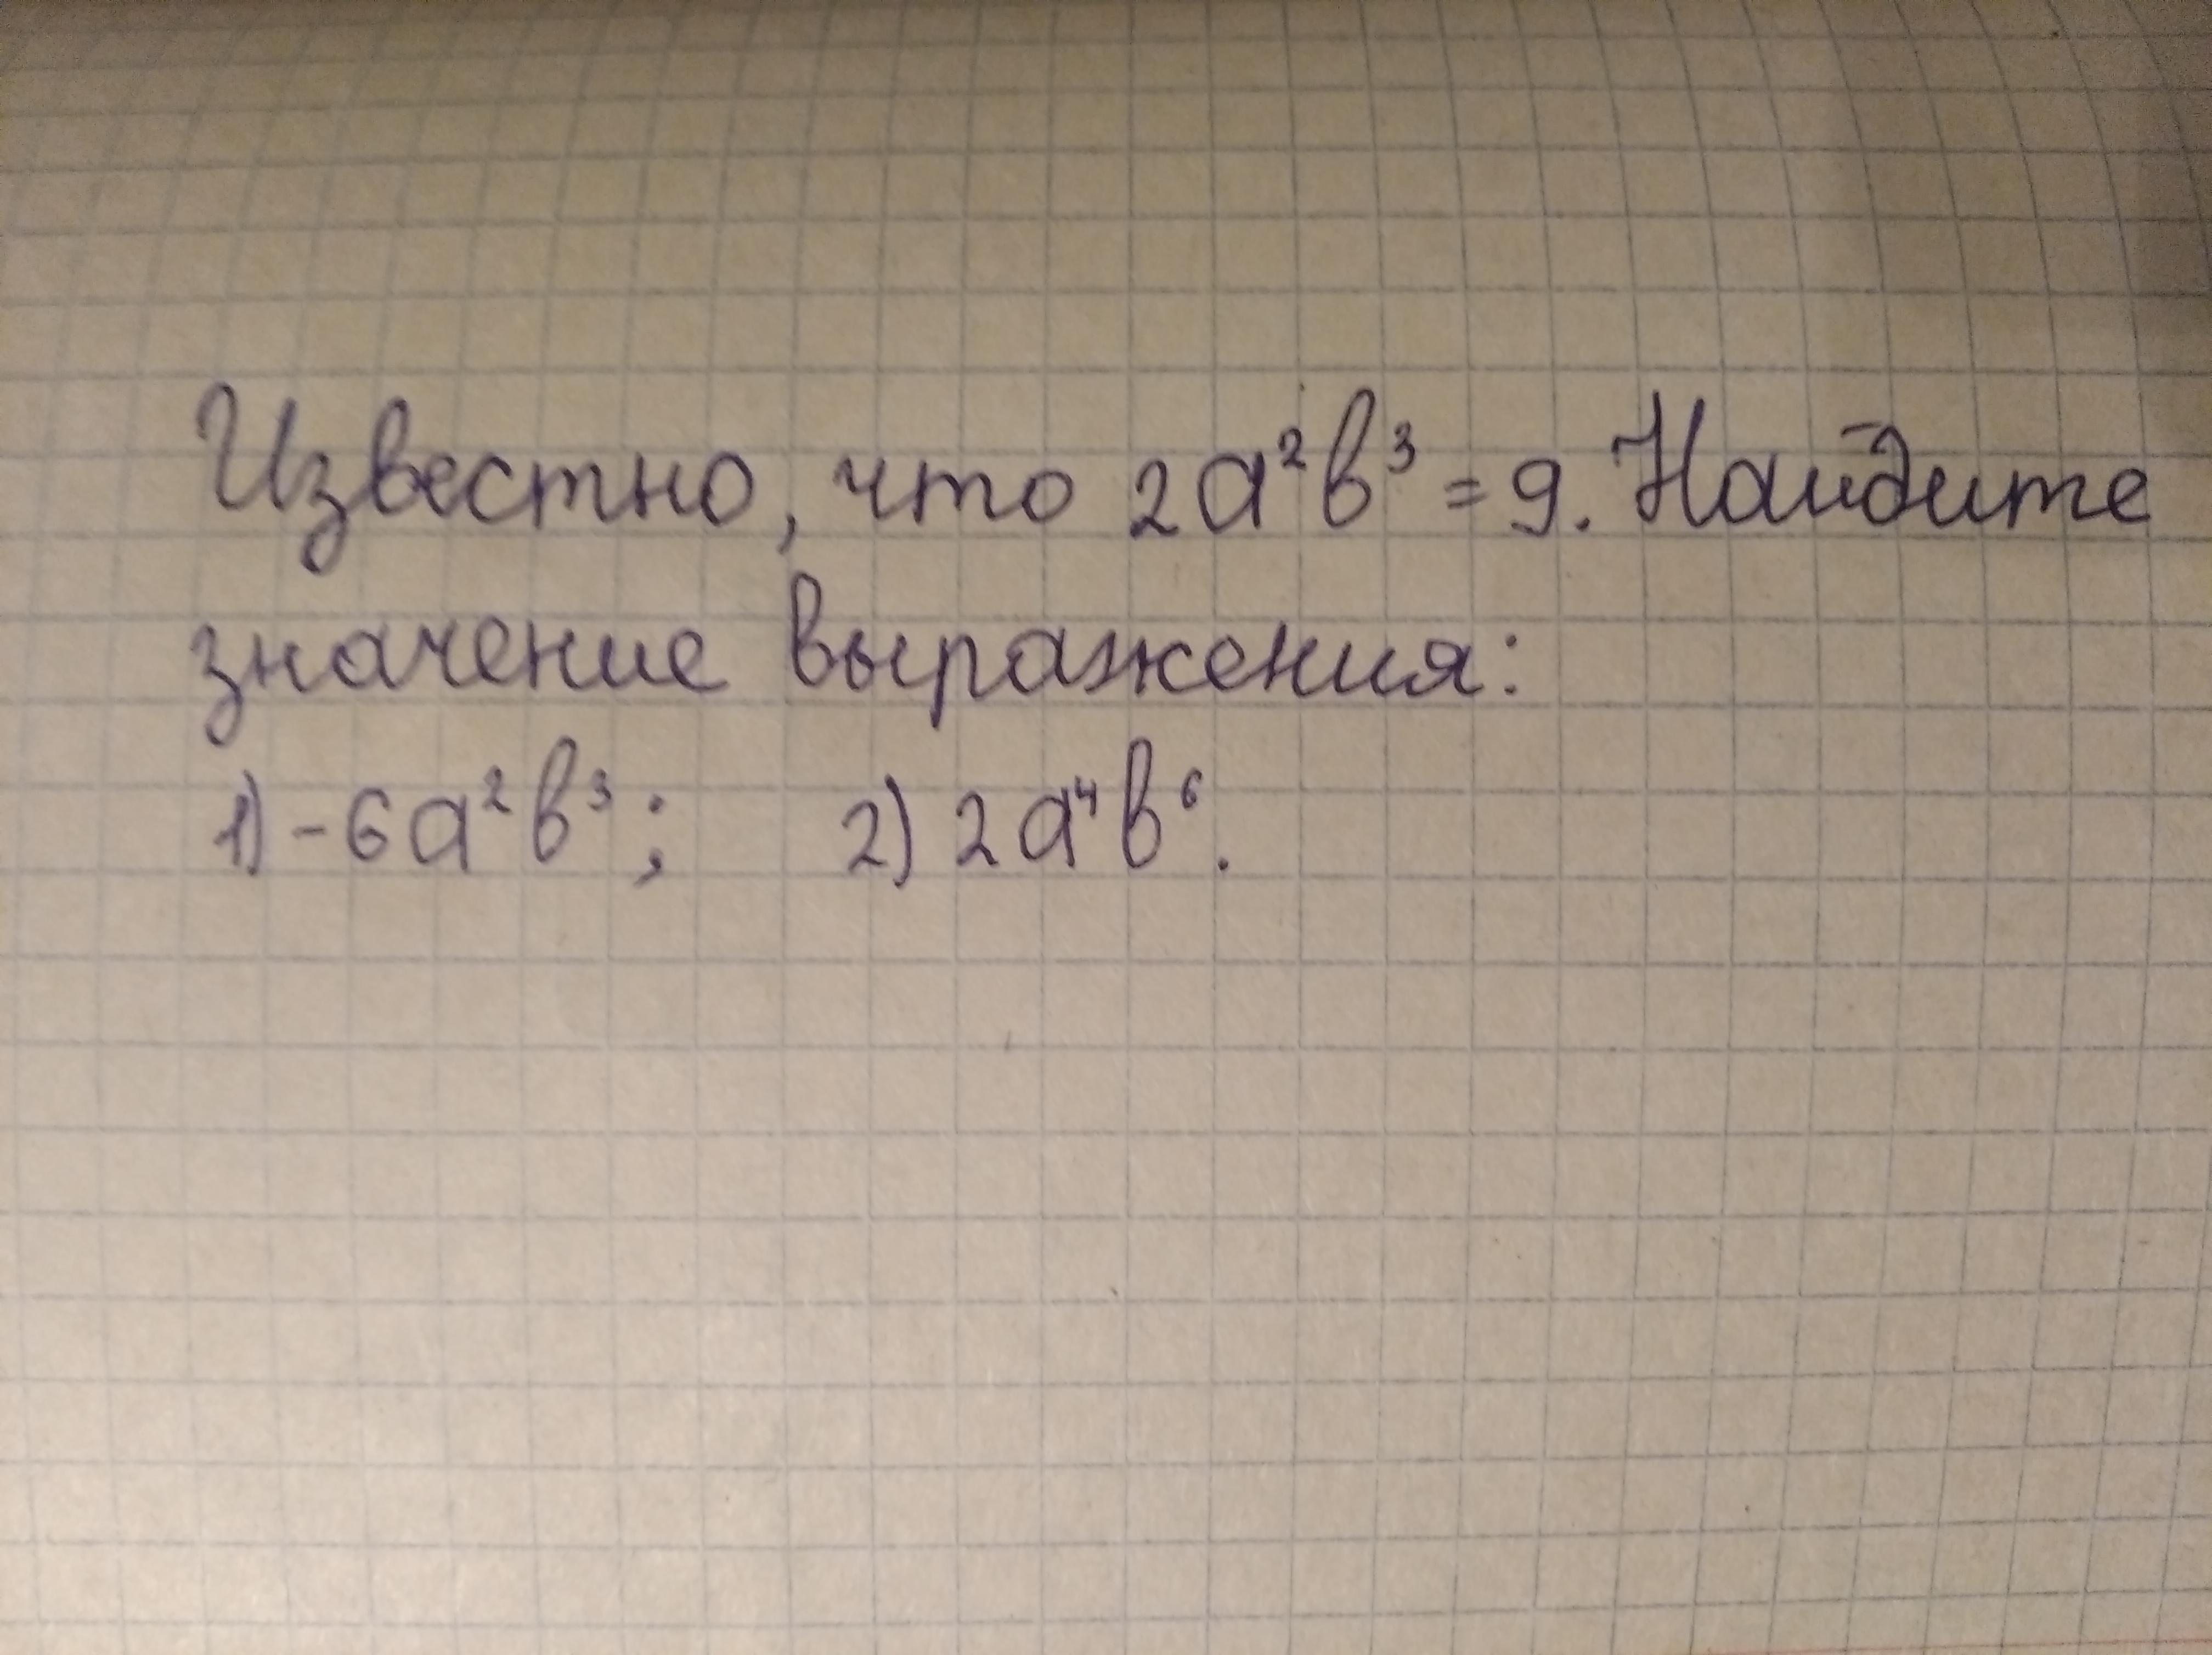 Известно, что 2a²b³ = 9. Найдите
значение выражения:
1) -6a²b³; 2) 2a⁴b⁶.